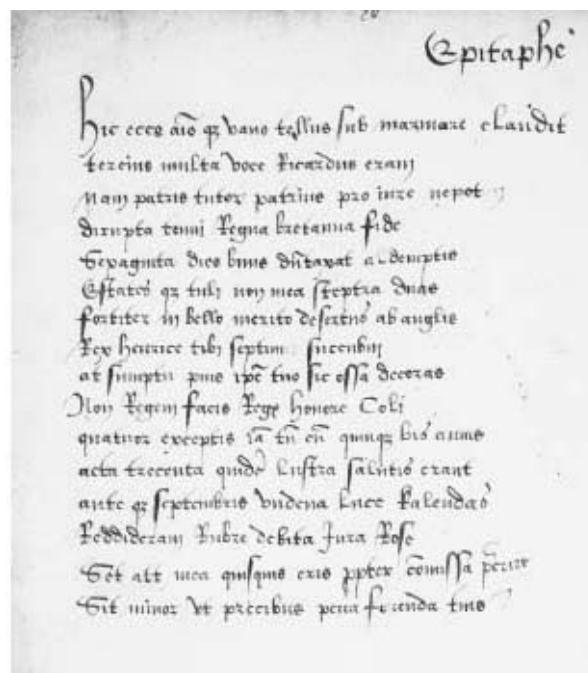 Epitaphe
hic ego quem vario tellus sub marmore claudit
tercius multa voce Ricardus eram
nam patrie tutor patrius pro iure nepotis
dirupta tenui Regna bretanna fide
Sexaginta dies binis dūtaxat ademptis
Estates qz tuli non mea sceptra duas
fortiter in bello merito desertus ab anglis
Rex henrice tibi septime succubui
at sumptu pius ipē tuo sic ossa decoras
Non Regem facis Rege honore Coli
quatuor exceptis iā tū cū quinqz bis annis
acta trecenta quidē lustra salutis erant
ante qz septembris undena luce kalendas
Reddideram Rubre debita Jura Rose
Set mea quisquis eris ppter cōmissa
Sit minor ut precibus pena ferenda tuis